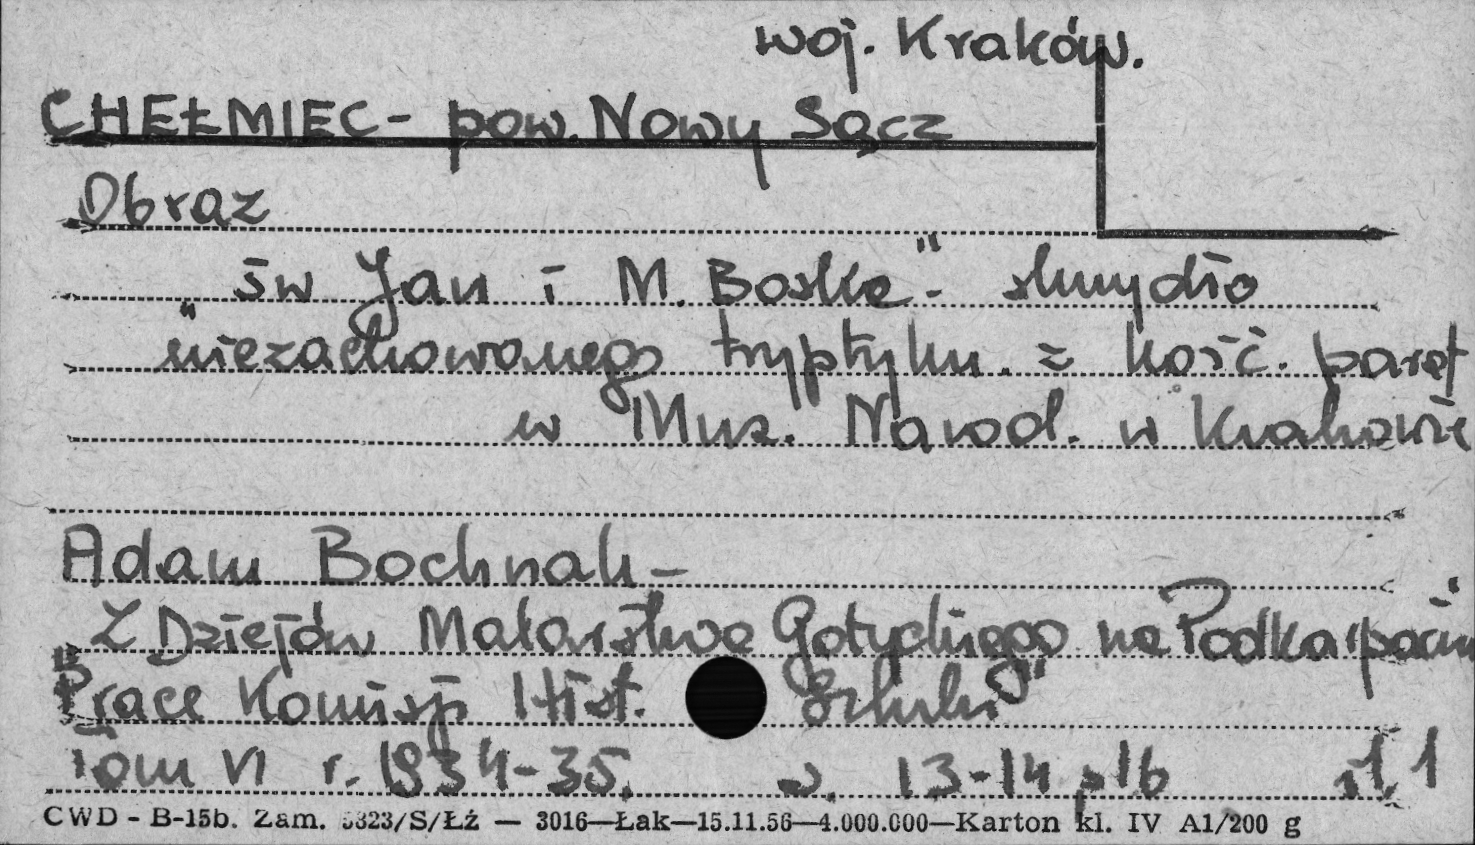 woj. Kraków.
CHEŁMIEC - pow. Nowy Sącz
Obraz
„św Jan i M. Boska" - skrzydło
niezachowanego tryptyku. z kośc. paraf
w Muz. Narod. w Krakowie
Adam Bochnak -
Z Dziejów Malarstwa Gotyckiego na Podkarpaciu
„Prace Komisji Hist. Sztuki"
Tom VI r. 1934-35. s. 13-14, 16
CWD - B-15b. Zam. 5323/S/Łż — 3016—Łak—15.11.56—4.000.000—Karton kl. IV A1/200 g